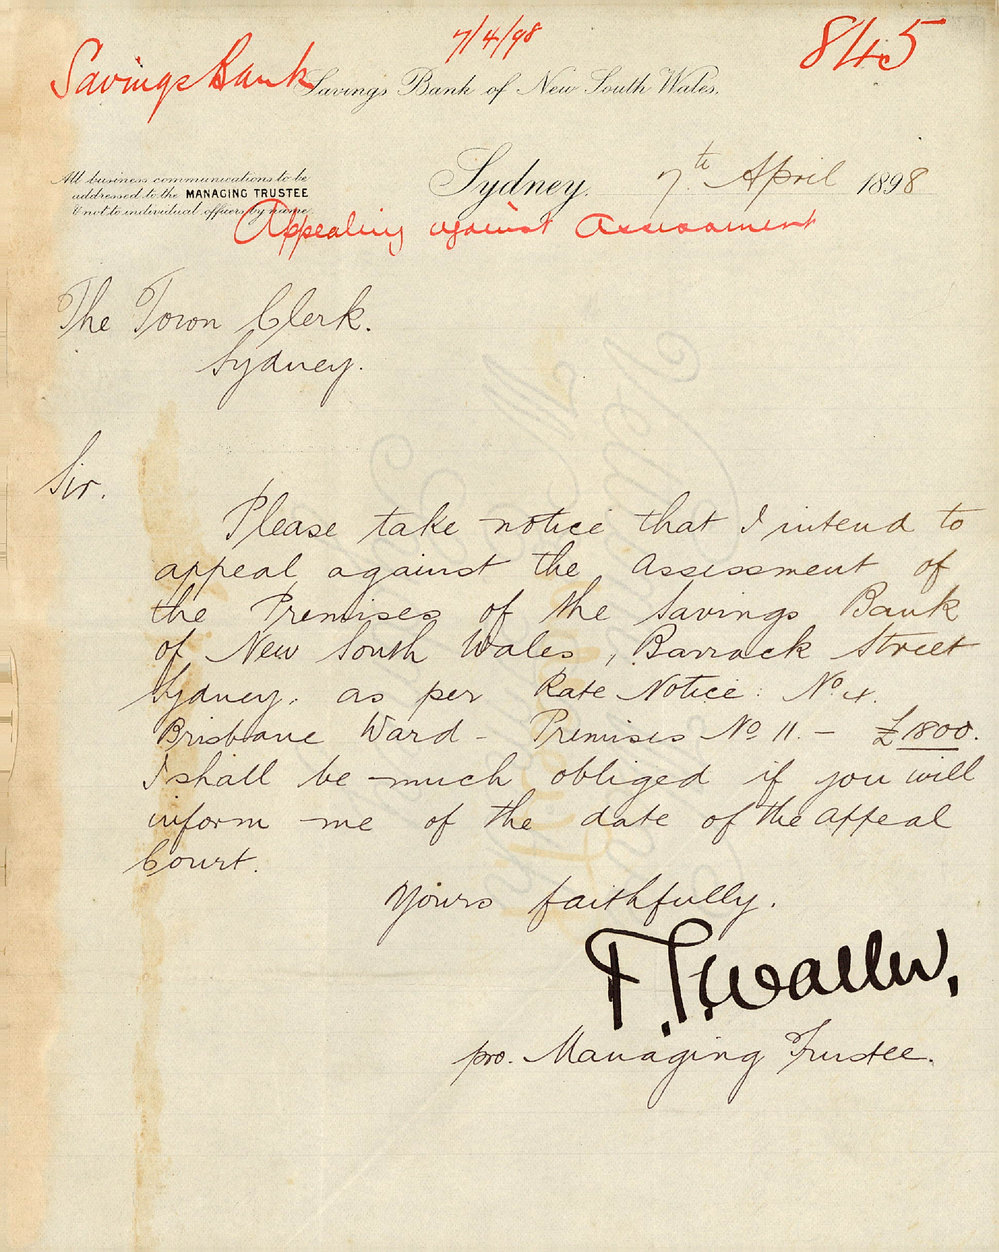 7/4/98
845
Savings Bank
Savings Bank of New South Wales.
All business communications to be
addressed to the MANAGING TRUSTEE
& not to individual officers by name.
Sydney, 7th April 1898
Appealing against Assessment
The Town Clerk.
Sydney.
Sir.
Please take notice that I intend to
appeal against the Assessment of
the Premises of the Savings Bank
of New South Wales, Barrack Street
Sydney. as per Rate Notice: No 4.
Brisbane Ward - Premises No 11. - £1800.
I shall be much obliged if you will
inform me of the date of the Appeal
Court.
Yours faithfully.
F. T. Waller.
pro. Managing Trustee.